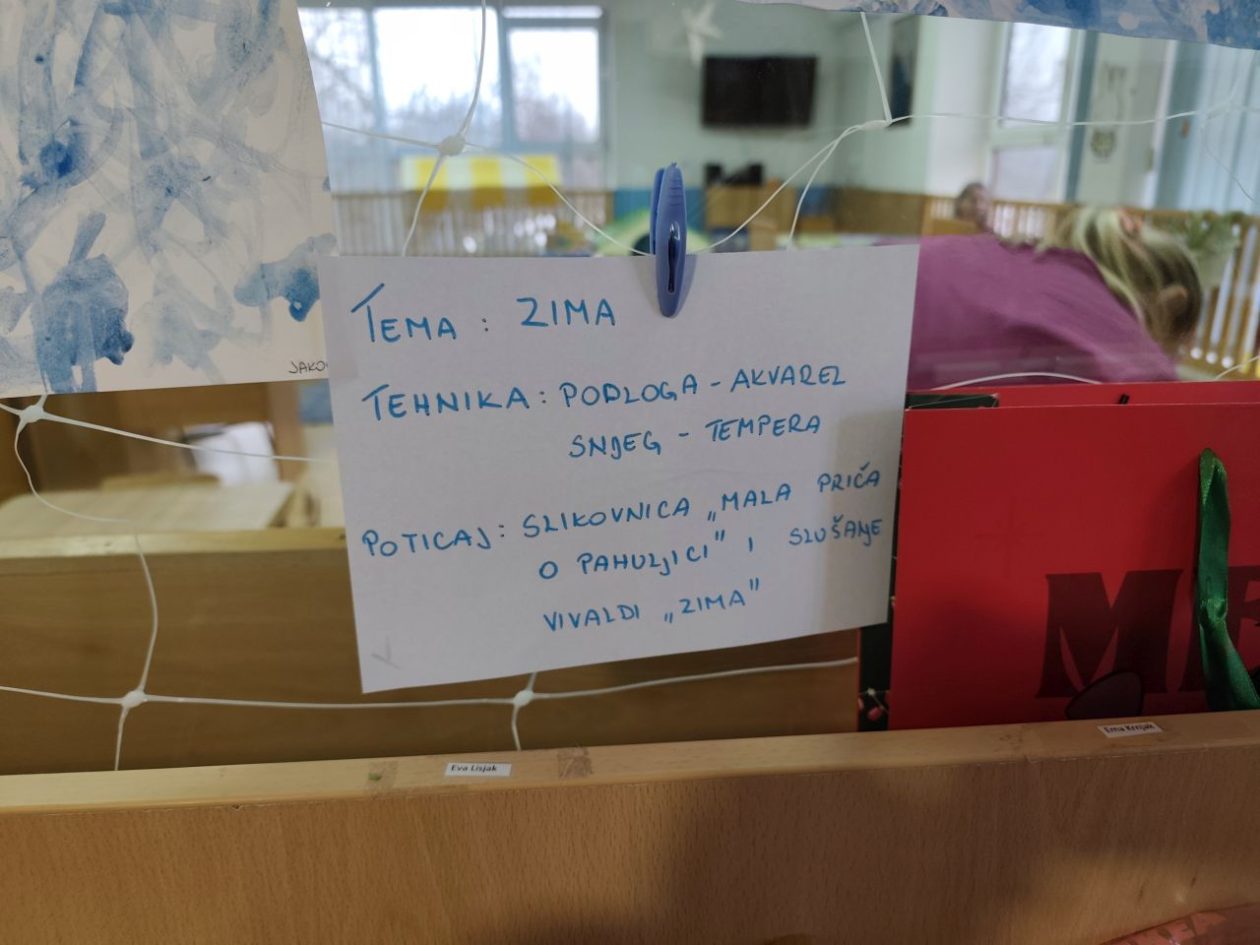 JAKO
TEMA : ZIMA
TEHNIKA : PODLOGA - AKVAREL
SNJEG - TEMPERA
POTICAJ : SLIKOVNICA „MALA PRIČA
O PAHULJICI" I SLUŠANJE
VIVALDI „ZIMA"
ME
Eva Lisjak
Ema Krnjak